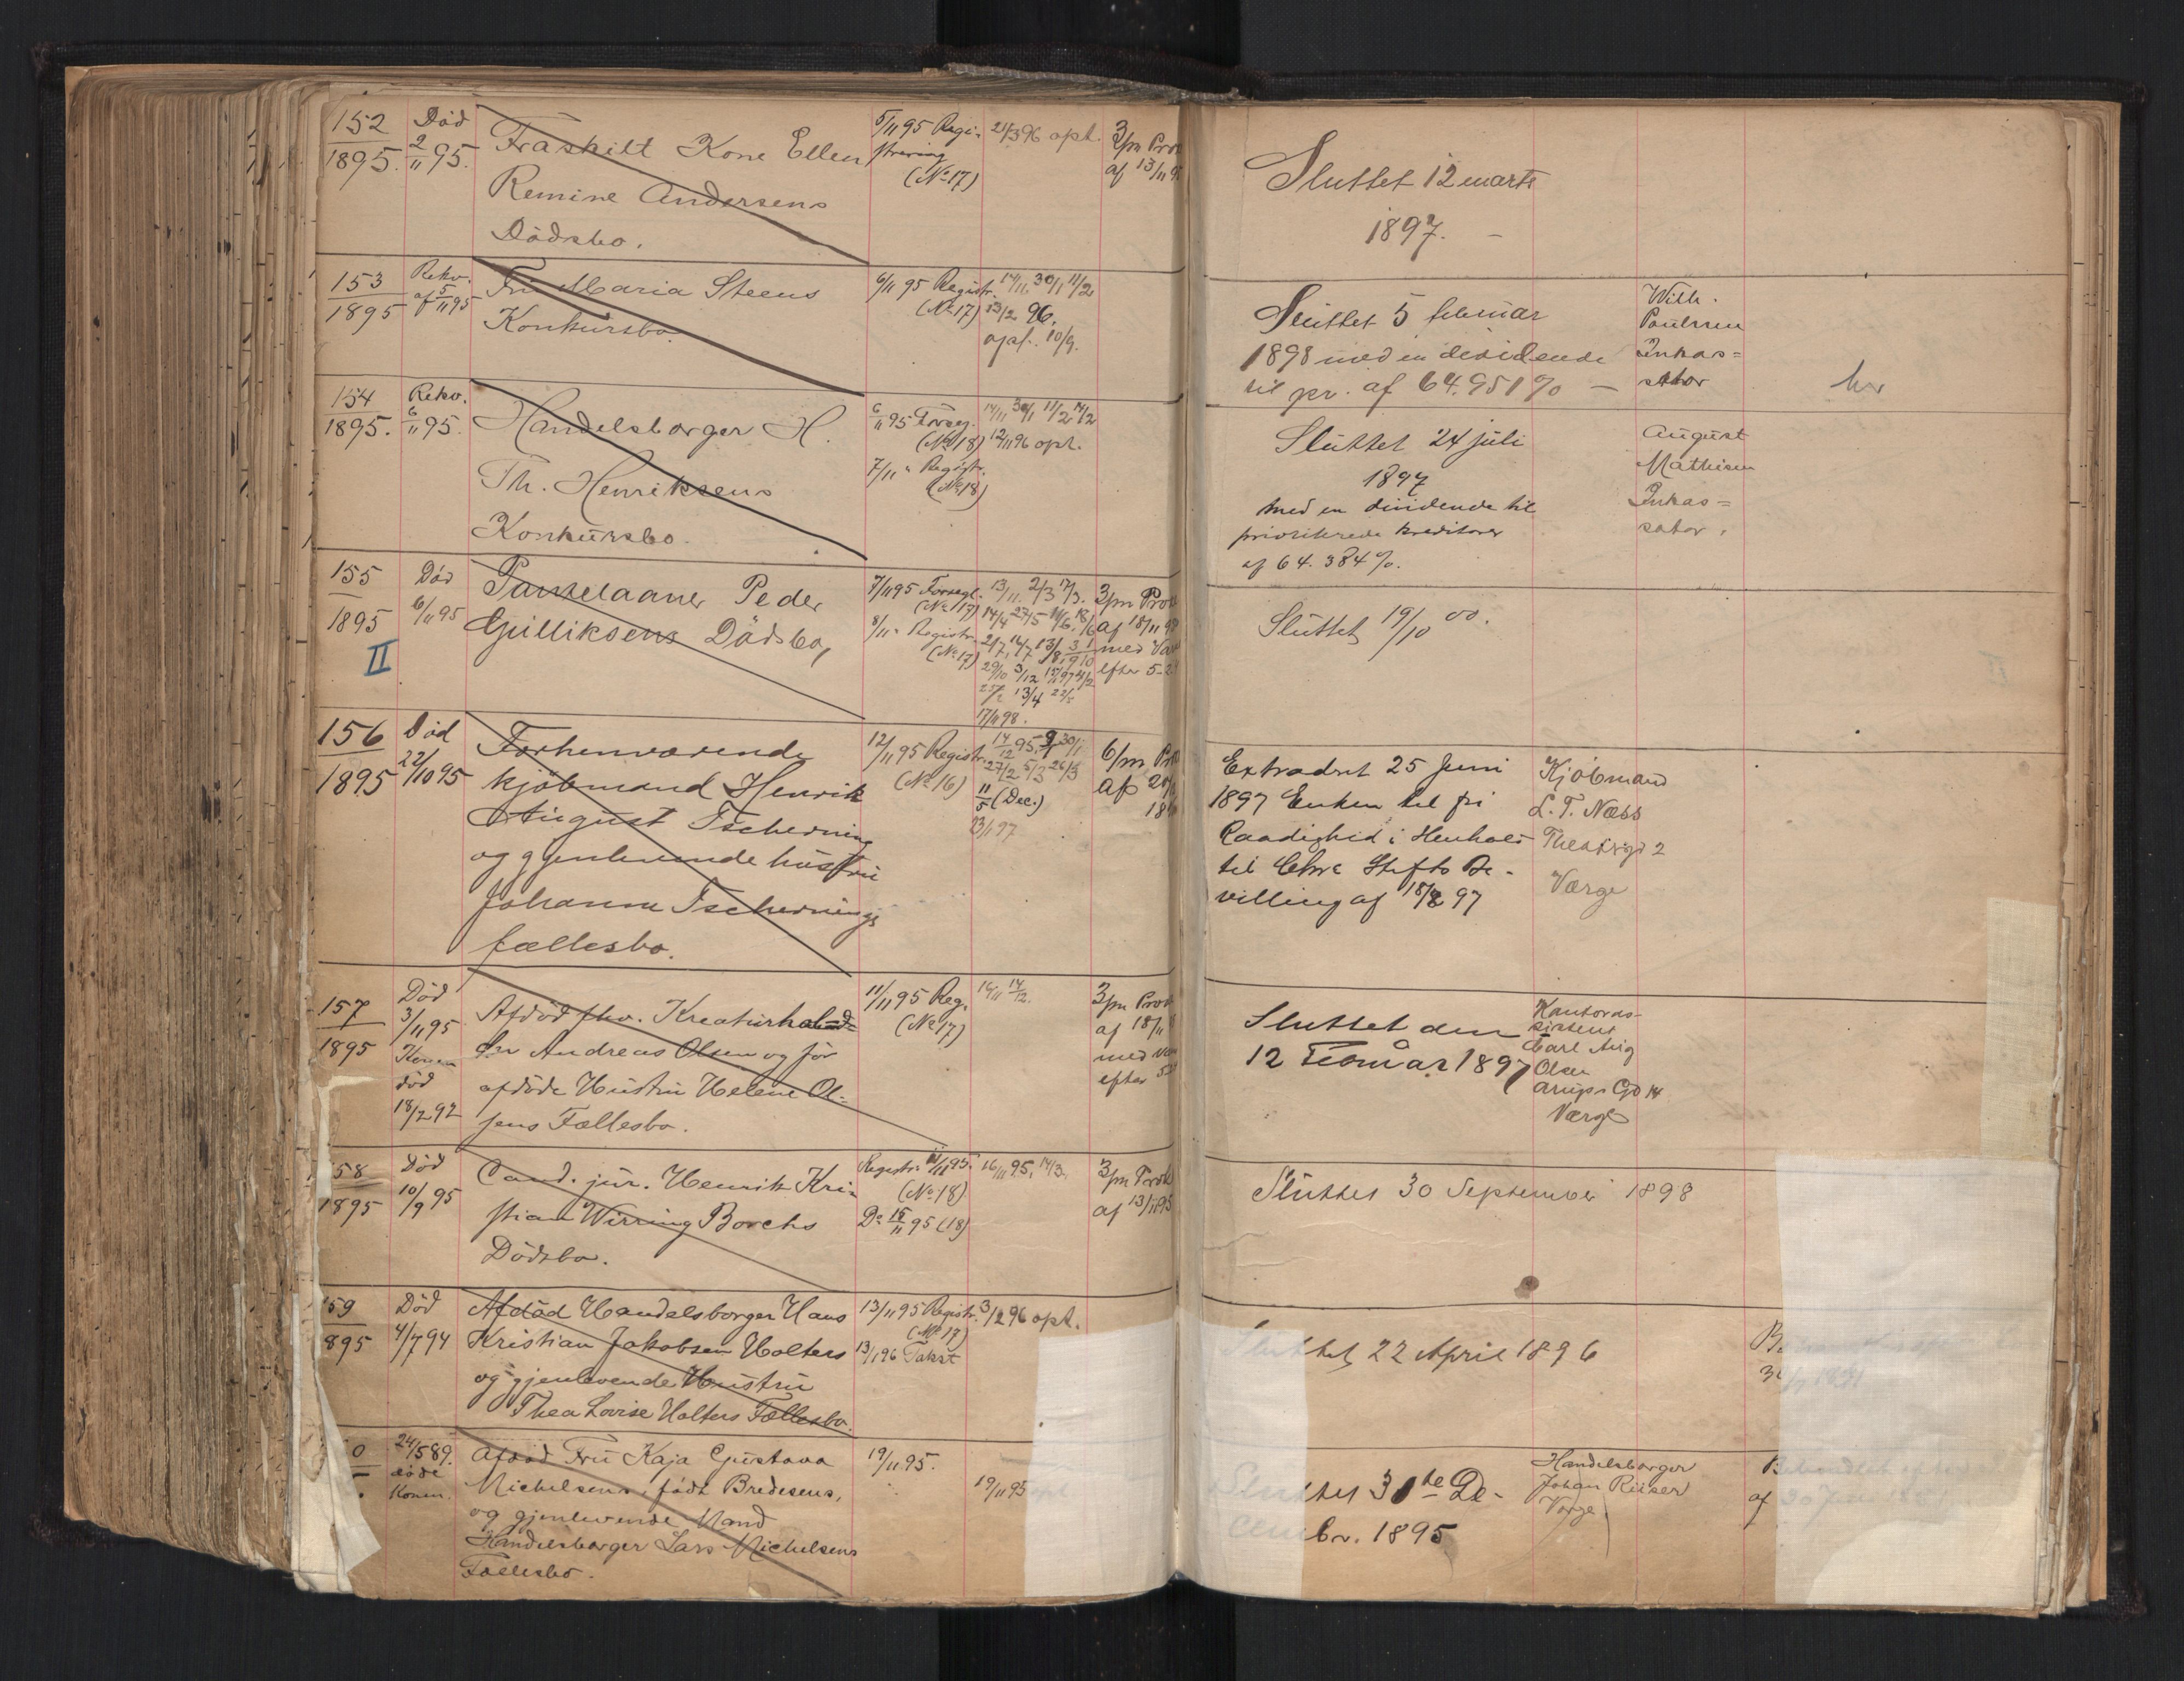 152
1895.
Död
2/11 95.
Fraskilt Kone Ellen
Remine Andersens
Dödsbo.
5/11 95 Regi-
strering
(No 17)
21/3 96 opt.
3/m Pro
af 13/11 9
Sluttet 12 marts
1897. –
153
1895
Rekv.
af 5/11 95
Fru Maria Steens
Konkursbo.
6/11 95 Registr.
(No 17)
14/11 30/1 11/2
13/2 96.
10/9.
Sluttet 5 februar
1898 med en dividende
til pr. af 64.951 % –
Wilh.
Paulssen
Inkas=
sator
154
1895.
Rekv.
6/11 95.
Handelsborger H.
Th. Henriksens
Konkursbo.
6/11 95 Forseg.
(No 18)
7/11 " Registr.
(No 18)
14/11 30/1 11/2 14/2
12/11 96 opt.
Sluttet 24 juli
1897
med en dividende til
prioriterede kreditorer
af 64.384 %.
August
Mathisen
Inkas=
sator.
155
1895
II
Död
6/11 95
Gulliksens Dödsbo,
Peder
7/11 95 Forsegl.
(No 17)
8/11 " Registr.
(No 17)
13/11 2/3 17/3.
13/4 22/5
17/11 98.
3/m Pro
af 18/11 9
med Va
efter 5-2
Sluttet 19/10 00.
156
1895
Död
22/10 95
Forhenværende
kjöbmand Henrik
August Tscherning
og gjenlevende hustru
Johanne Tschernings
fællesbo.
12/11 95 Registr.
(No 16)
14/12 95, 9/1 30/1
27/2 5/3 26/3
11/5 (Dec.)
23/1 97
6/m Pr
af 20/
18
Extradert 25 Juni
1897 Enken til fri
Raadighed i Henhold
til Chra Stifts Be-
villing af 18/2 97
Kjöbmand
L. T. Næss
Theatrgd 2
Værge
157
1895
Död
3/11 95
Konen
död
18/2 92
Afdöd fhv. Kreaturhand-
ler Andreas Olsen og för
afdöde Hustru Helene Ol-
sens Fællesbo.
11/11 95 Reg.
(No 17)
16/11 14/12.
3/m Prov
af 18/11
med va
efter 5
Sluttet den
12 Februar 1897
Kontoras-
sistent
Carl Aug
Olsen
Arups Gd 14
Værge
58
1895
Död
10/9 95
Cand. jur. Henrik Kri-
stian Wirring Borchs
Dödsbo.
Registr. 11/11 95.
(No 18)
Do 15/11 95 (18)
16/11 95. 14/3.
3/m Prok
af 13/11 95
Sluttet 30 September 1898
59
895
Död
4/7 94
Afdöd Handelsborger Hans
Kristian Jakobsen Holters
og gjenlevende Hustru
Thea Lovise Holters Fællesbo.
13/11 95 Registr.
(No 17)
13/1 96 Takst
3/2 96 opt.
Sluttet 22 April 1896
0
24/5 89.
döde
Konen.
Afdöd Fru Kaja Gustava
Michelsens, födt Bredesens,
og gjenlevende Mand
Handelsborger Lars Michelsens
Fællesbo.
19/11 95.
19/11 95
Sluttet 31te De-
cembr. 1895
Handelsborger
Johan Riiser
Værge
af